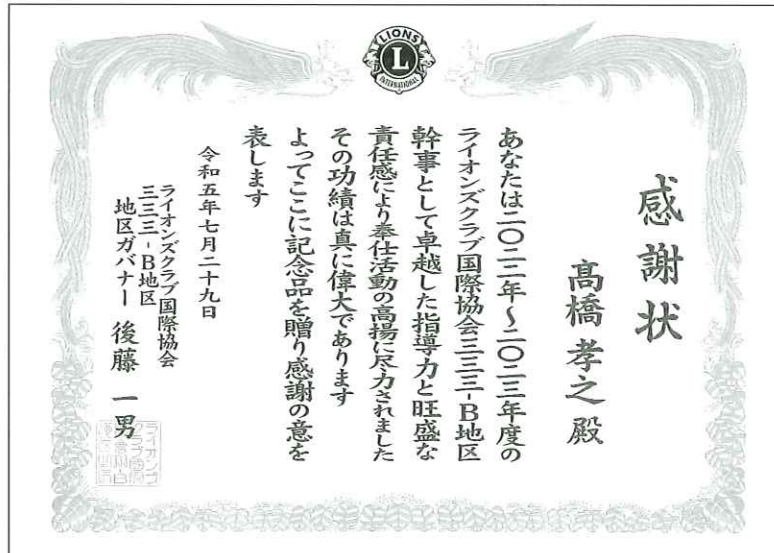 LIONS
L
INTERNATIONAL
感謝状
髙橋孝之殿
あなたは二〇二二年～二〇二三年度の
ライオンズクラブ国際協会三三三-B地区
幹事として卓越した指導力と旺盛な
責任感により奉仕活動の高揚に尽力されました
その功績は真に偉大であります
よってここに記念品を贈り感謝の意を
表します
令和五年七月二十九日
ライオンズクラブ国際協会
三三三-B地区
地区ガバナー 後藤 一男